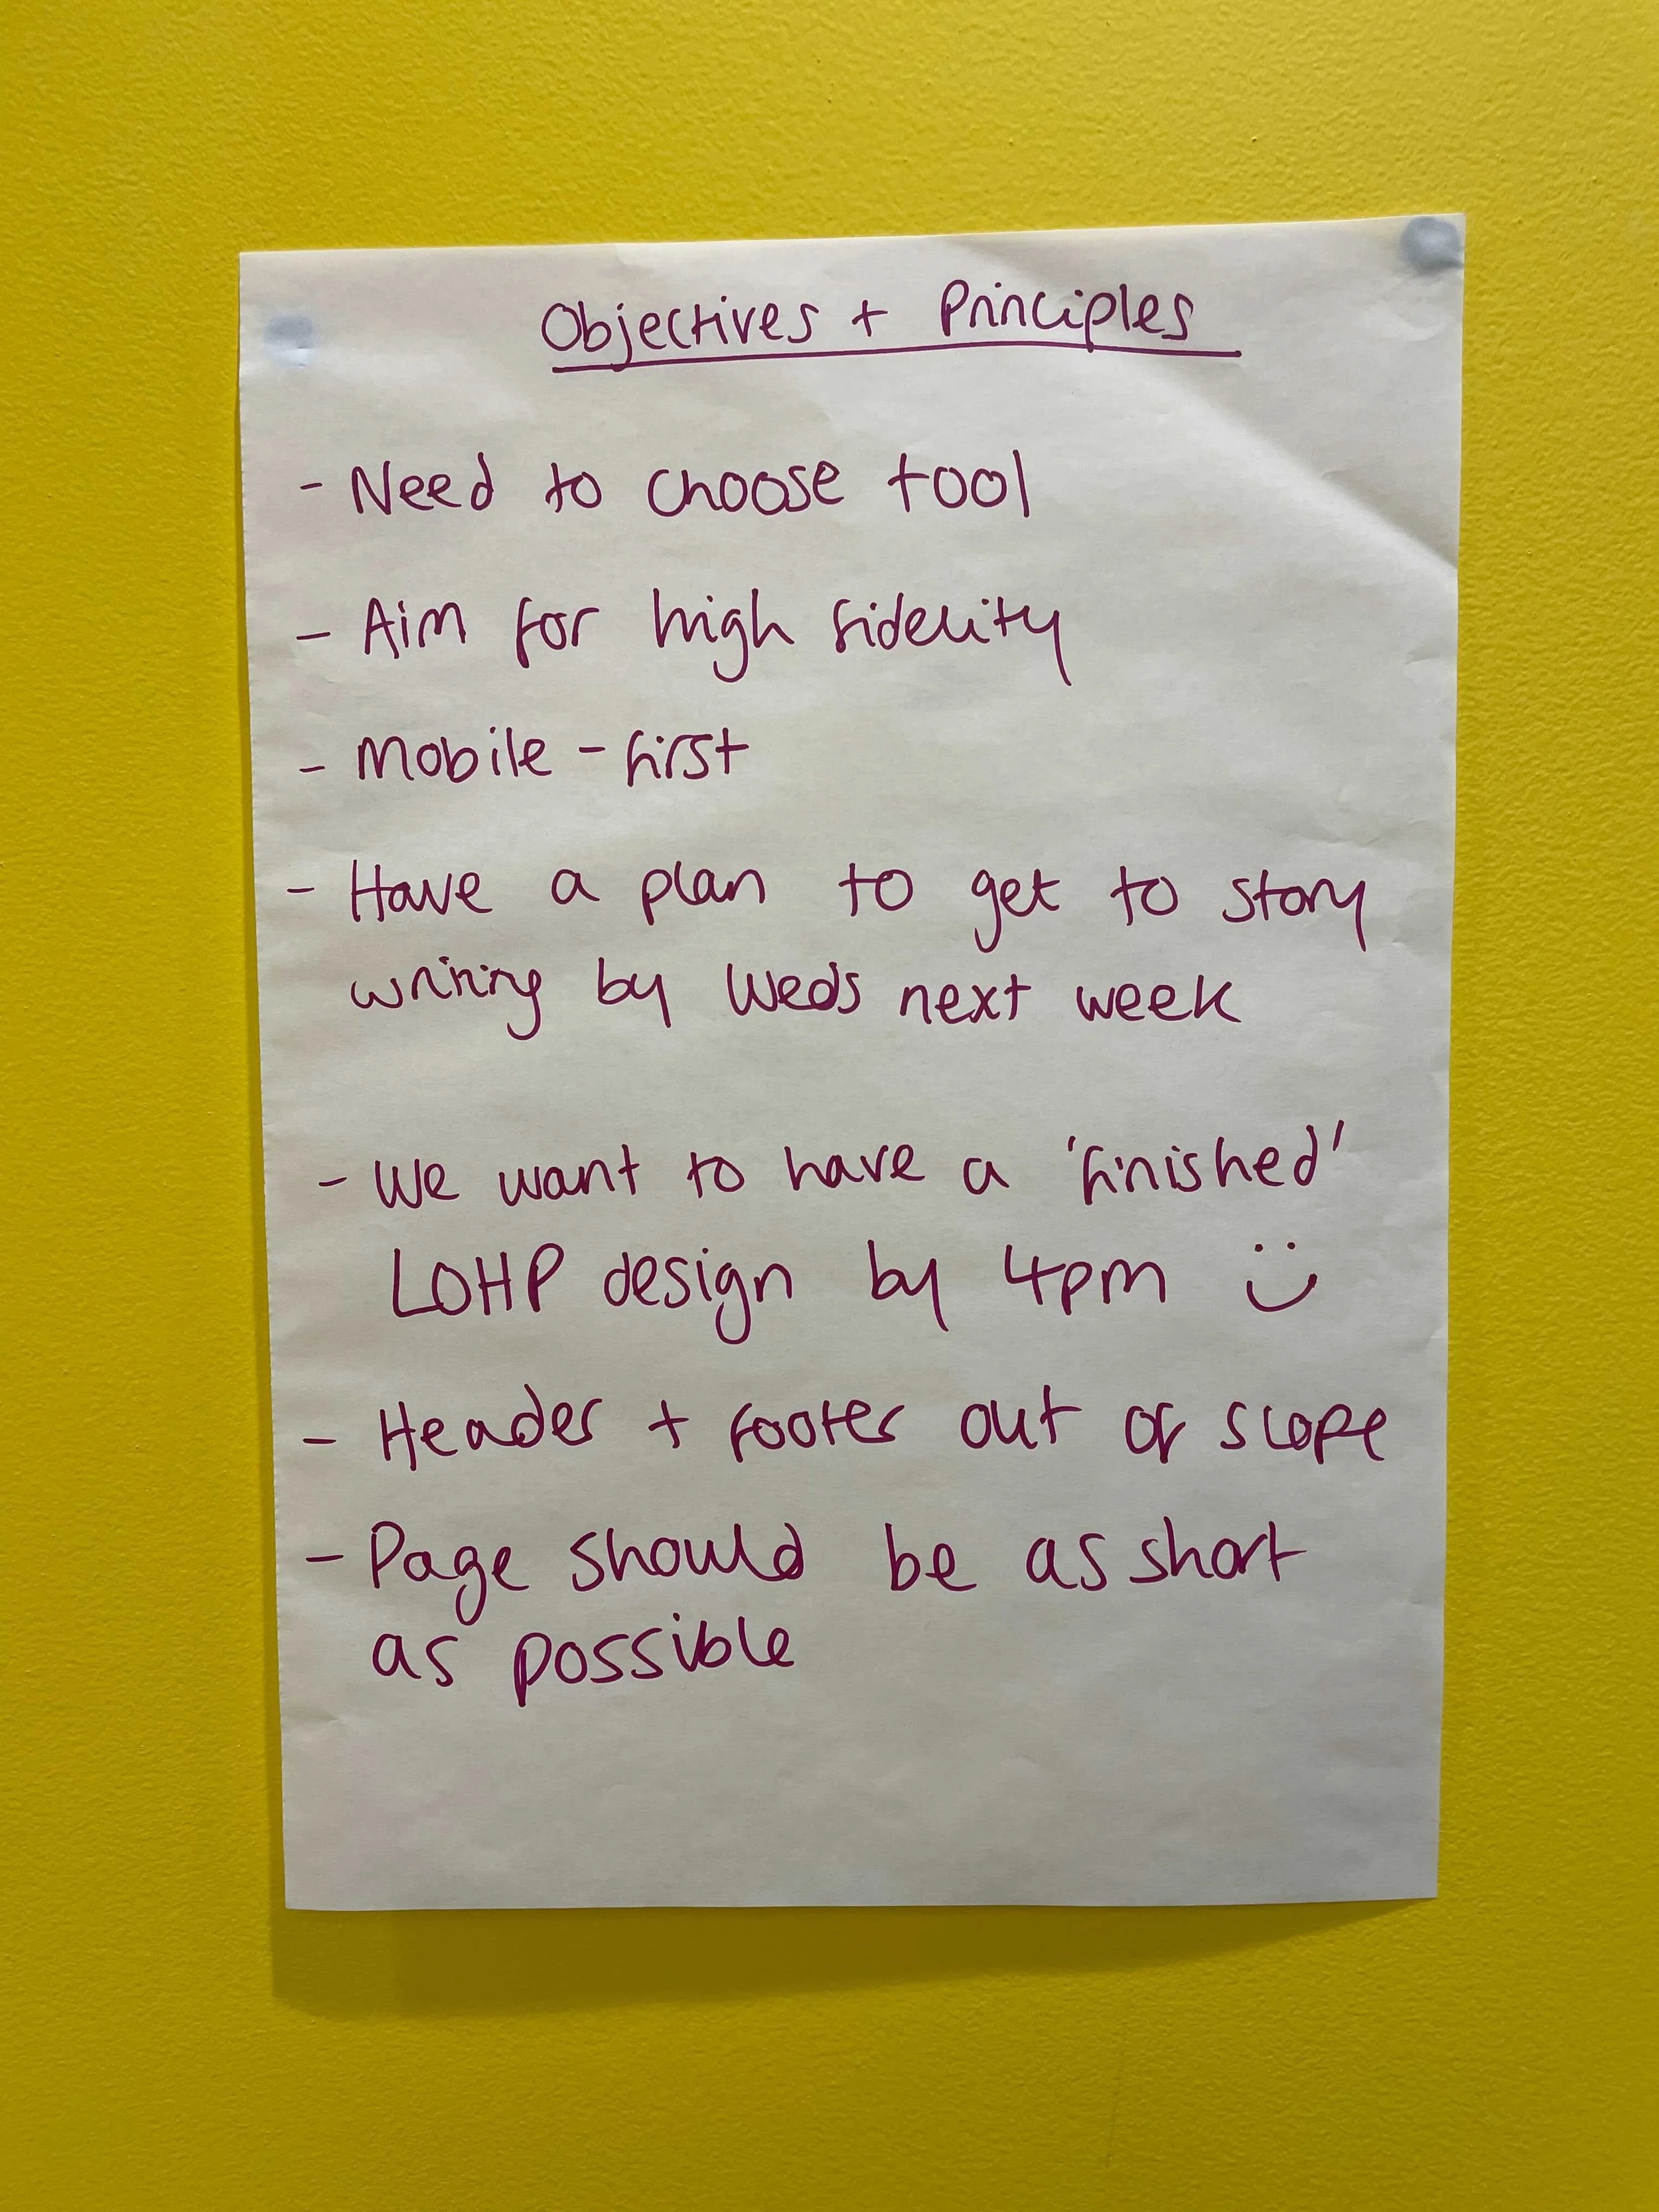 Objectives + Principles
- Need to choose tool
- Aim for high fidelity
- Mobile - first
- Have a plan to get to story
writing by Weds next week
- We want to have a 'finished'
LOHP design by 4pm :)
- Header + footer out of scope
- Page should be as short
as possible